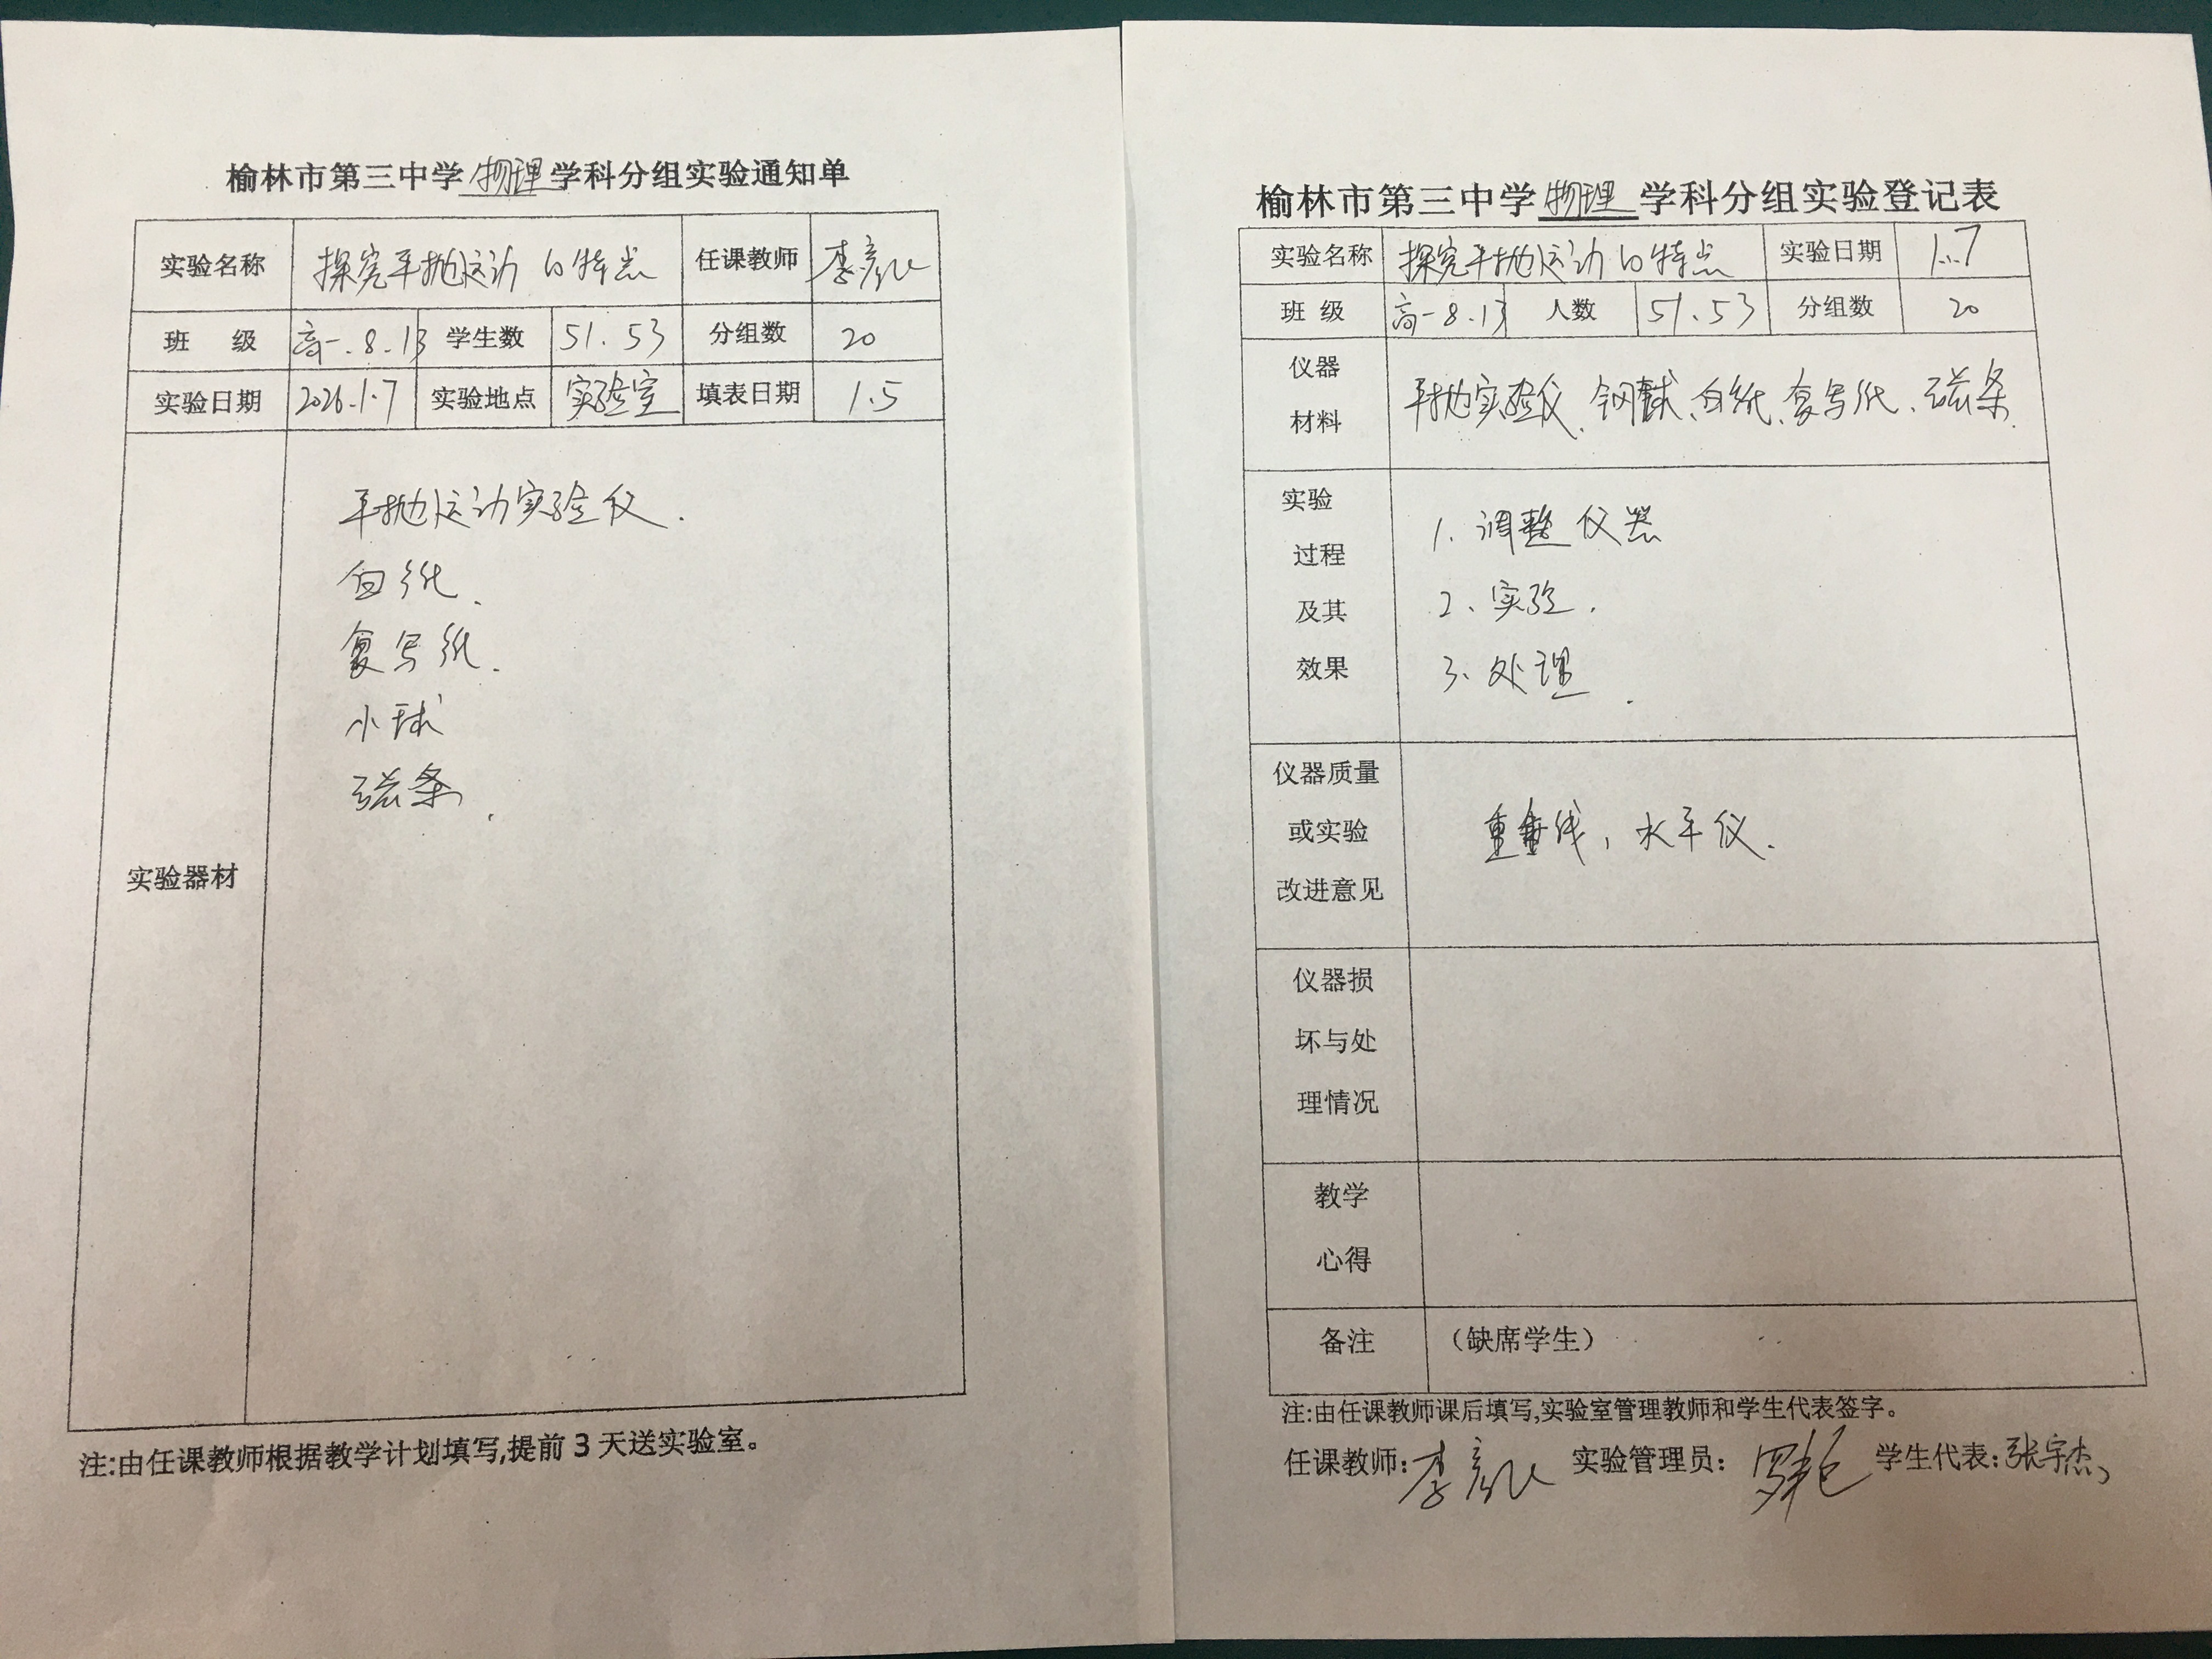 榆林市第三中学物理学科分组实验通知单
实验名称 探究平抛运动的特点 任课教师 李彦
班 级 高一.8.13 学生数 51.53 分组数 20
实验日期 2026.1.7 实验地点 实验室 填表日期 1.5
实验器材
平抛运动实验仪.
白纸、
复写纸.
小球
磁条.
注:由任课教师根据教学计划填写,提前3天送实验室。
榆林市第三中学物理学科分组实验登记表
实验名称 探究平抛运动的特点 实验日期 1.7
班 级 高一8.13 人数 51.53 分组数 20
仪器
材料
平抛实验仪、钢球、白纸、复写纸、磁条.
实验
过程
及其
效果
1. 调整仪器
2、实验.
3、处理.
仪器质量
或实验
改进意见
重垂线,水平仪.
仪器损
坏与处
理情况
教学
心得
备注 (缺席学生)
注:由任课教师课后填写,实验室管理教师和学生代表签字。
任课教师: 李彦 实验管理员: 罗 学生代表: 张宇杰